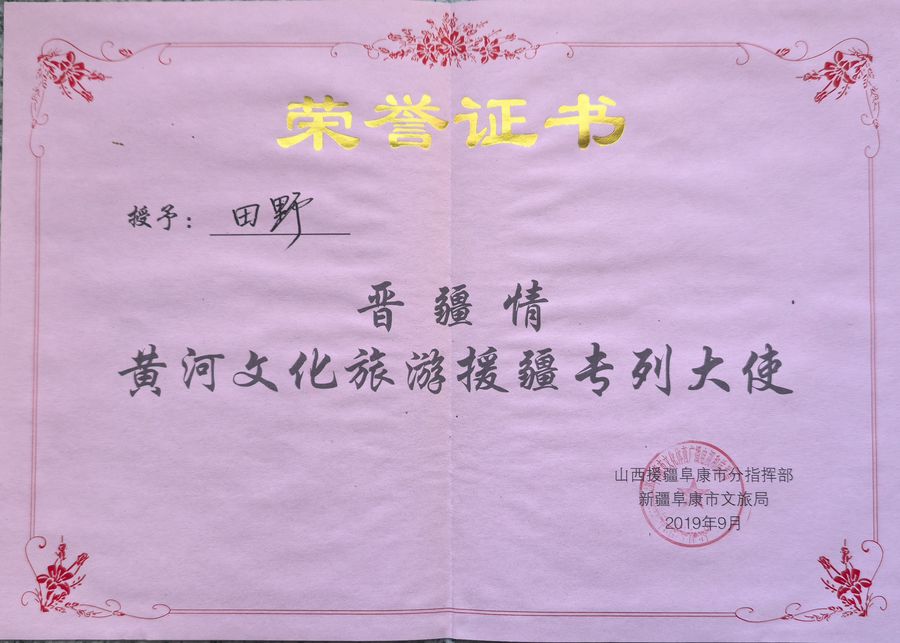 荣誉证书
授予：田野
晋疆情
黄河文化旅游援疆专列大使
山西援疆阜康市分指挥部
新疆阜康市文旅局
2019年9月